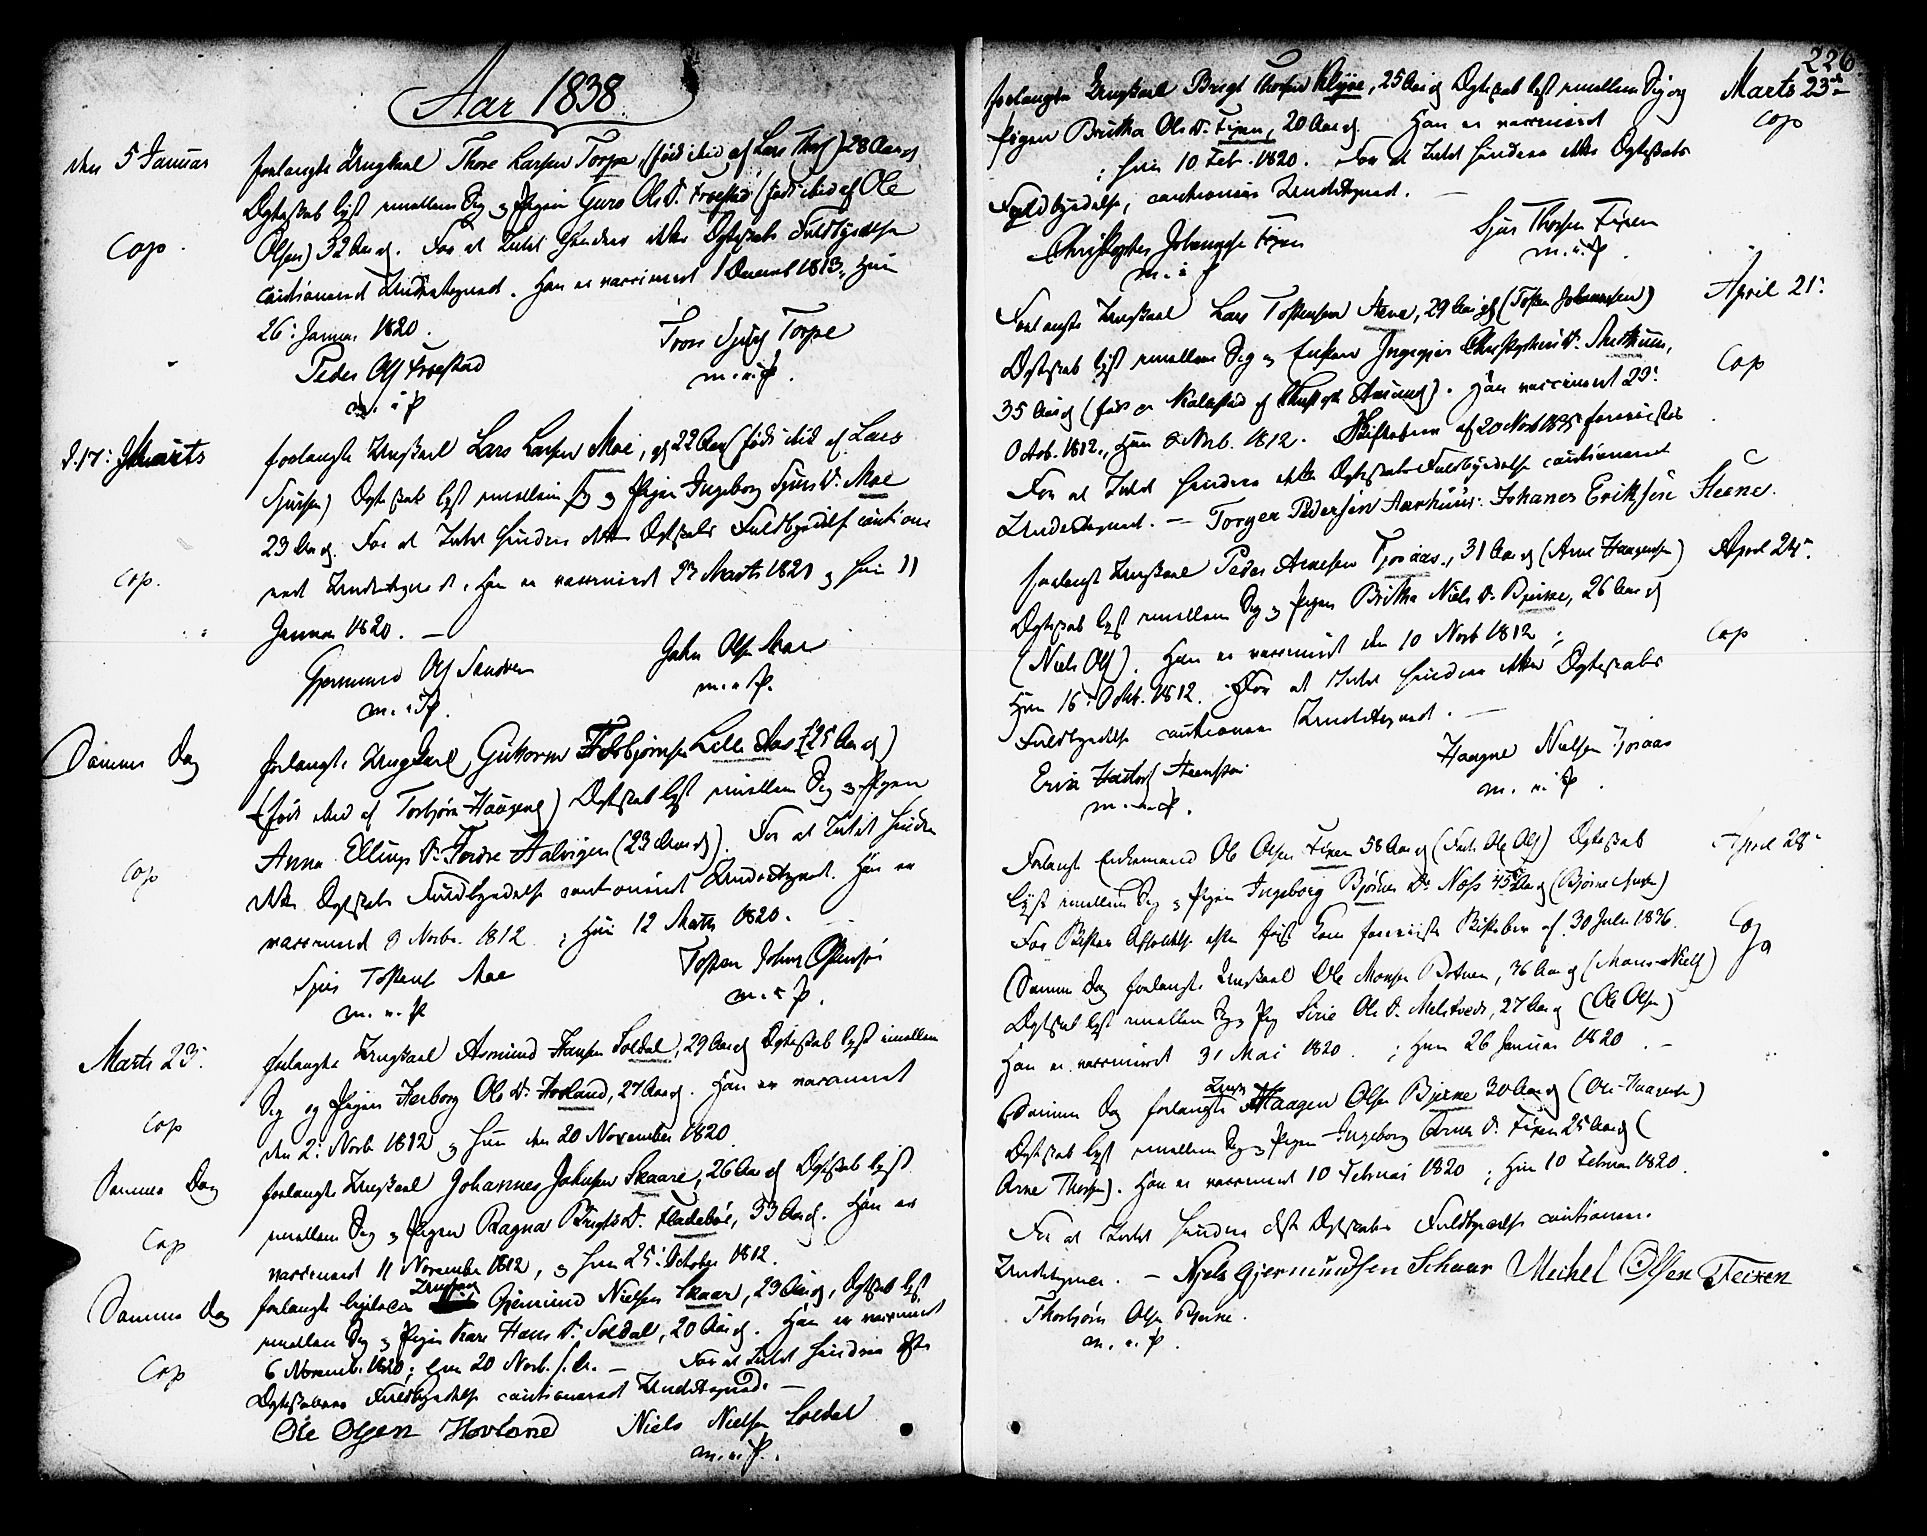 Aar 1838
den 5 Januar
forlangte Ungkarl Thore Larsen Torpe, (født ibid af Lars Thors) 28 Aar g
Ægteskab lyst imellem Sig og Pigen Guro Ols D. (født ibid af Ole
Cop.
Olsen) 32 Aar g. For at Intet hindrer dette Ægteskabs Fuldbyrdelse
cautionered Undertegned. Han er vaccineret 1 Decemb 1813, Hun
26: Januar 1820.
Peder Ols
m. i P
Torpe
m. i. P.
d. 17: Marts
forlangte Ungkarl Lars Larsen Moe, g 22 Aar (født ibid af Lars
Sjursen) Ægteskab lyst imellem Sig og Pigen Ingeborg Sjurs D. Moe
23 Aar g. For at Intet hindrer dette Ægteskabs Fuldbyrdelse caution
Cop.
nered Undertegned. Han er vaccineret 27 Marts 1821 og Hun 11
Januar 1820. —
Gjermund Ols Sandven
m. i P.
John Olsen Moe
m. i P.
Samme Dag
forlangte Ungkarl Guttorm Torbjørnsen Lille Aas (25 Aar g)
(født ibid af Torbjørn Haagens) Ægteskab lyst imellem Sig og Pigen
Anna Ellings D. Fordre Aalvigen (23 Aar g). For at Intet hindrer
Cop
dette Ægteskabs Fuldbyrdelse cautionered Undertegned. Han er
vaccineret 8 Novbr. 1812; Hun 12 Marts 1820.
Sjur Tostens Moe
m. i. P
Tosten Johns
m. i P.
Marts 23:
forlangte Ungkarl Asmund Hansen Soldal, 29 Aar g Ægteskab lyst imellem
Sig og Pigen Herborg Ols D. Hovland, 27 Aar g. Han er vaccineret
Cop
den 2: Novb 1812 og Hun den 20 November 1820.
Samme Dag
forlangte Ungkarl Johannes Jakobsen Skaare, 26 Aar g Ægteskab lyst
imellem Sig og Pigen Ragna Brigts D. Fladebøe, 33 Aar g. Han er
Cop
vaccineret 11 November 1812, og Hun 25: October 1812.
Samme Dag
forlangte ligeledes Ungkarl Gjermund Nielsen Skaar, 29 Aar g, Ægteskab lyst
imellem Sig og Pigen Kari Hans D. Soldal, 20 Aar g. Han er vaccineret
Cop
6 Novemb. 1820; Hun 20 Novb. s. A. — For at Intet hindrer disse
Ægteskabers Fuldbyrdelse cautionered Undertegned. —
Ole Olsen Hovland
Niels Nielsen Soldal
m. i. P.
226
forlangte Ungkarl Brigt Thorsen Klyve, 25 Aar g Ægteskab lyst imellem Sig og
Marts 23de
Pigen Britha Ols D. Fixen, 20 Aar g. Han er vaccineret
Cop
; Hun 10 Feb. 1820. For at Intet hindrer dette Ægteskabs
Fuldbyrdelse, cautionerer Undertegned. —
Christopher Johannesen Fixen
m. i P
Sjur Thorsen Fixen
m. i. P.
April 21:
Forlangte Ungkarl Lars Tostensen Stene, 29 Aar g (Tosten Johannesen)
Ægteskab lyst imellem Sig og Enken Ingegjer Christophers D.
Cop
35 Aar g (født
Octob. 1812, Hun 8 Novb. 1812. Skiftebrev af 20 Novb 1835 forevistes
For at Intet hindrer dette Ægteskabs Fuldbyrdelse cautionered
Undertegned. — Torger Pedersen Aarhuus. Johanes Eriksen Steene.
April 24:
forlangte Ungkarl Peder Arnesen Tjoraas, 31 Aar g (Arne Haagensen)
Ægteskab lyst imellem Sig og Pigen Britha Niels D. Bjerke, 26 Aar g
(Niels Ols). Han er vaccineret den 10 Novb 1812;
Cop
Hun 16: Octb. 1812. For at Intet hindrer dette Ægteskabs
Fuldbyrdelse cautionerer Undertegned. —
Erik
m. i. P.
Haagne Nielsen Tjoraas
m. i. P.
April 28
Forlangte Enkemand Ole Olsen Fixen 58 Aar g (Fader Ole Ols) Ægteskab
lyst imellem Sig og Pigen Ingeborg Bjørns D. Næss 45 Aar g (Bjørne
Cop
For forevist Skiftebrev af 30 Juli 1836.
Samme Dag forlangte Ungkarl Ole Monsen Botnen, 36 Aar g (Mons Niels)
Ægteskab lyst imellem Sig og Pig Sirie Ols D. Melstveit, 27 Aar g (Ole Olsen)
Han er vaccineret 31 Mai 1820; Hun 26 Januar 1820. —
Samme Dag forlangte Ungk Haagen Olsen Bjerke 30 Aar g (Ole Haagensen)
Ægteskab lyst imellem Sig og Pigen Ingeborg Arne D. Fixen 25 Aar g (
Arne Thorsen). Han er vaccineret 10 Februar 1820; Hun 10 Februar 1820.
For at Intet hindrer disse Ægteskaber Fuldbyrdelse cautionerer
Undertegnede. — Njels Gjermundsen Schaar Michel Olsen Feixen
Thorbjørn Olsen Bjerke.
m. i. P.